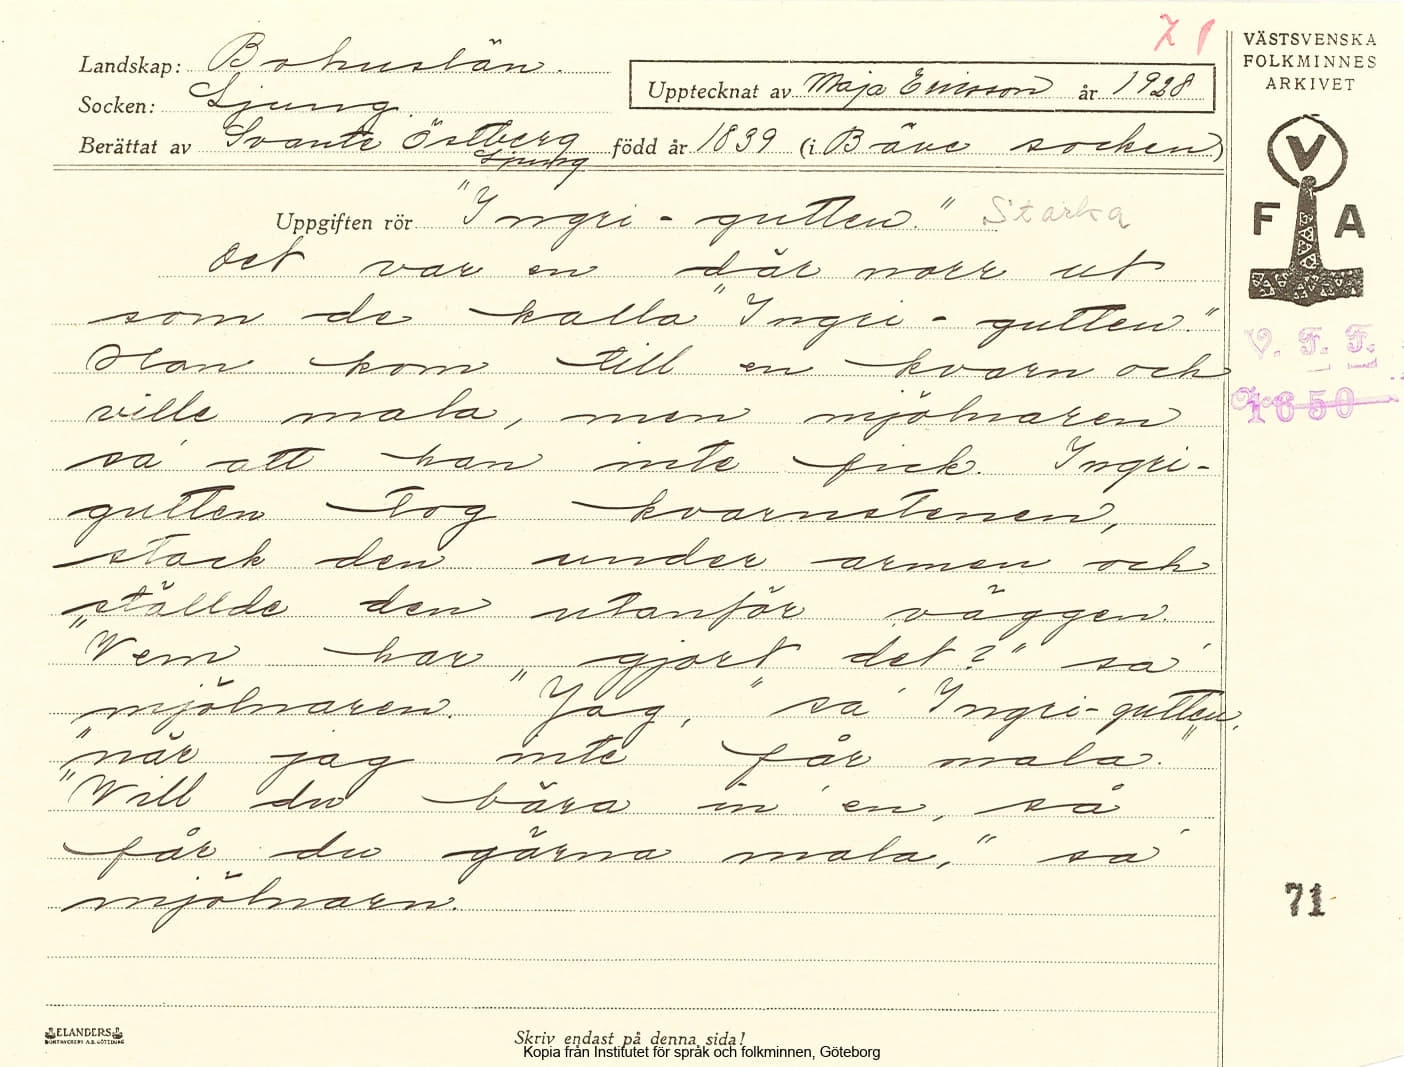 Z 1
Landskap: Bohuslän.
Socken: Ljung.
Upptecknat av Maja Ericsson år 1928
Berättat av Svante Östberg född år 1839 (i Bäve socken)
Ljung
Uppgiften rör "Ingri-gutten." Starka
Det var en där norr ut
som de kalla "Ingri-gutten."
Han kom till en kvarn och
ville mala, men mjölnaren
sa' att han inte fick. Ingri-
gutten tog kvarnstenen,
stack den under armen och
ställde den utanför väggen.
"Vem har gjort det?" sa'
mjölnaren. "Jag," sa' Ingri-gutten,
"när jag inte får mala."
"Vill du bära in 'en, så
får du gärna mala," sa'
mjölnarn.
VÄSTSVENSKA
FOLKMINNES
ARKIVET
V
F A
V. F. F.
1650
71
ELANDERS
BOKTRYCKERI A.B. GÖTEBORG
Skriv endast på denna sida!
Kopia från Institutet för språk och folkminnen, Göteborg